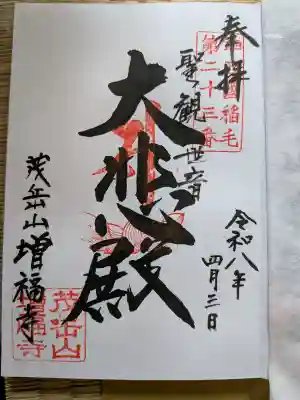 奉拝
第二十三番
聖観世音
大悲殿
令和八年
四月三日
茂岳山増福寺
茂岳山
増福寺